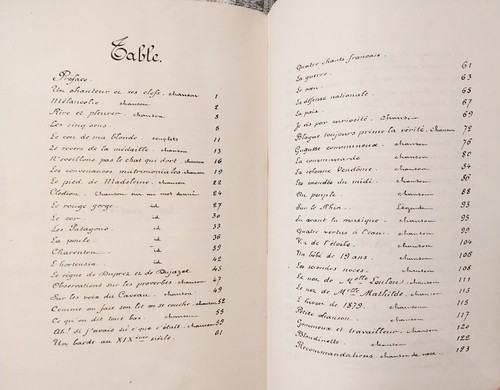 Table.
Préface.
Un chanteur et ses clefs. chanson 1
Mélancolie. chanson 2
Rire et pleurer. chanson 3
Les cinq sous. 8
Le cou de ma blonde. couplets 11
Le revers de la médaille. chanson 13
N'éveillons pas le chat qui dort. chanson 16
Les convenances matrimoniales. chanson 19
Le pied de Madeleine. chanson 22
Chanson sur un mot donné 24
Le rouge gorge. id 27
Le cor. id 30
Les Patagons. id 33
La poule. id 36
Charenton. id 39
L'hortensia. id 42
Le règne de Duprez et de Dejazet. 45
Observations sur les proverbes. chanson 47
Sur les voix du Caveau. chanson 49
Comme on fait son lit on se couche. chanson 52
Ce qu'on dit tout bas. chanson 55
Ah! si j'avais su c'que c'était. chanson 59
Un barde au XIXème siècle. 61
Quatre chants français. 61
La guerre. 63
Le 65
La défense nationale. 67
La paix. 69
Je vis par curiosité. Chanson 72
Blague toujours prime la vérité. Chanson
Gugusse communeux. chanson 76
La commune. chanson 80
La colonne Vendôme. chanson 84
Les du midi. chanson 86
Un peuple. chanson 88
Sur le Rhin. Légende 93
En avant la musique. chanson 95
Quatre vertus à l'eau. chanson 99
Va de l'étoile. chanson 104
Un bébé de 19 ans. chanson 106
Les secondes noces. chanson 108
Le nez de Melle Loulou. chanson 111
Le nez de Melle Mathilde. chanson 113
L'hiver de 1879. chanson 115
Petite chanson. chanson 117
et travailleur. chanson 120
Blondinette. chanson 122
Recommandations. chanson de noce. 123